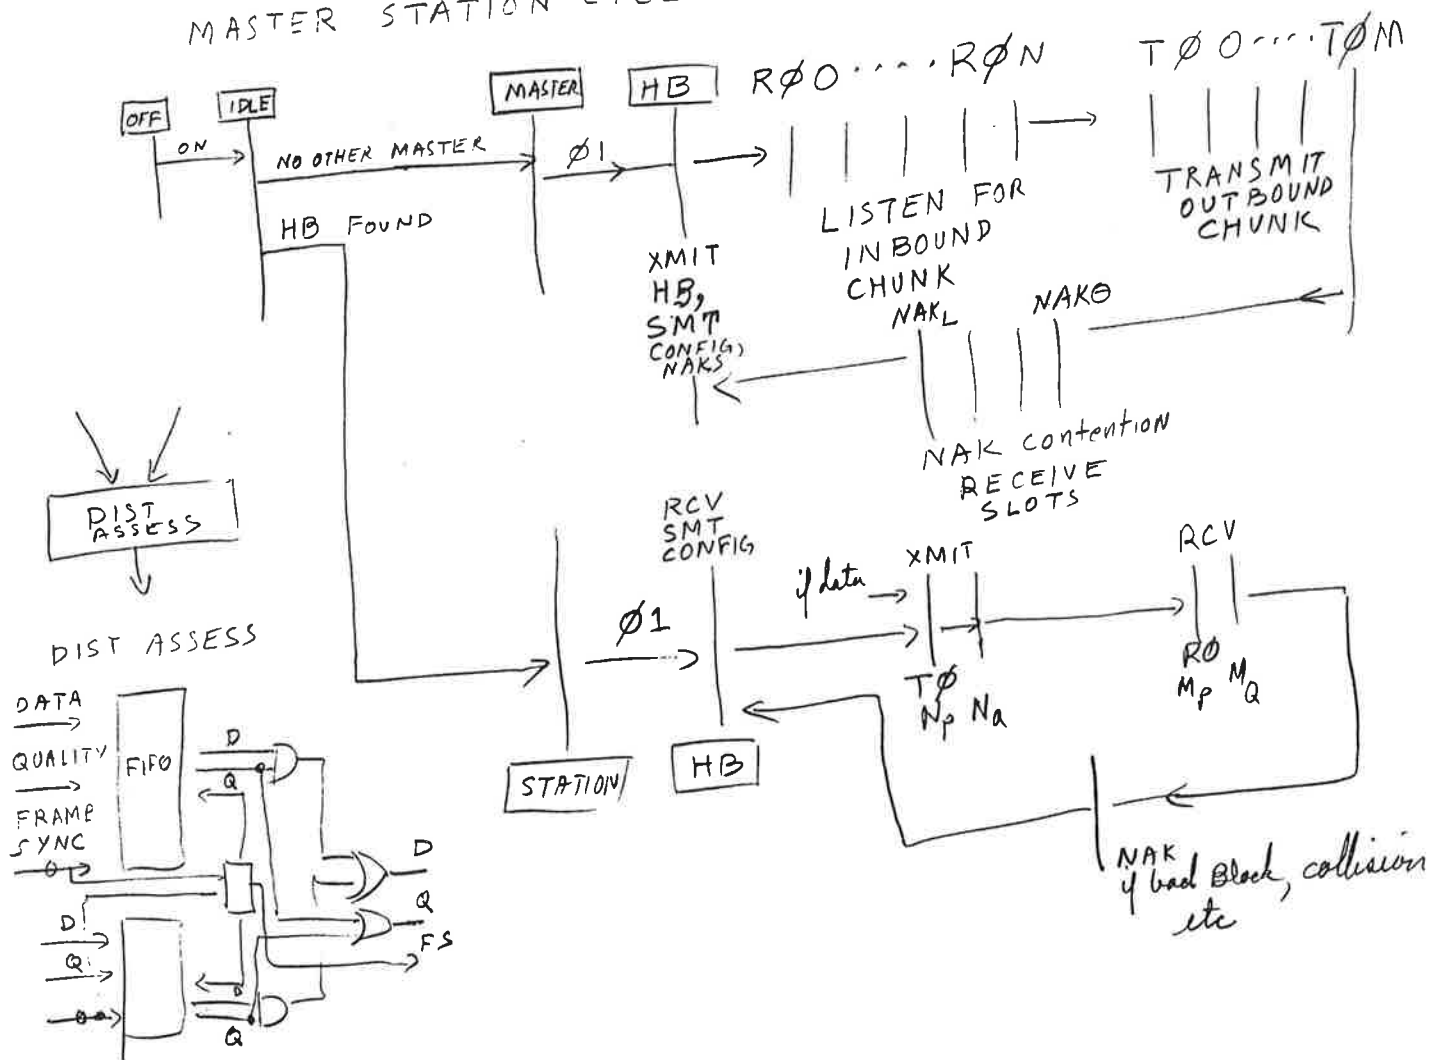 MASTER STATION
OFF
ON
IDLE
NO OTHER MASTER
HB FOUND
MASTER
Ø1
HB
RØO....RØN
LISTEN FOR
INBOUND
CHUNK
TØO....TØM
TRANSMIT
OUTBOUND
CHUNK
XMIT
HB,
SMT
CONFIG,
NAKS
NAKL
NAKΘ
NAK contention
RECEIVE
SLOTS
DIST
ASSESS
RCV
SMT
CONFIG
STATION
Ø1
HB
if data
XMIT
TØ
Np NQ
RCV
RØ
Mp MQ
NAK
if bad Block, collision
etc
DIST ASSESS
DATA
QUALITY
FRAME
SYNC
FIFO
D
Q
D
Q
FS
D
Q
D
Q